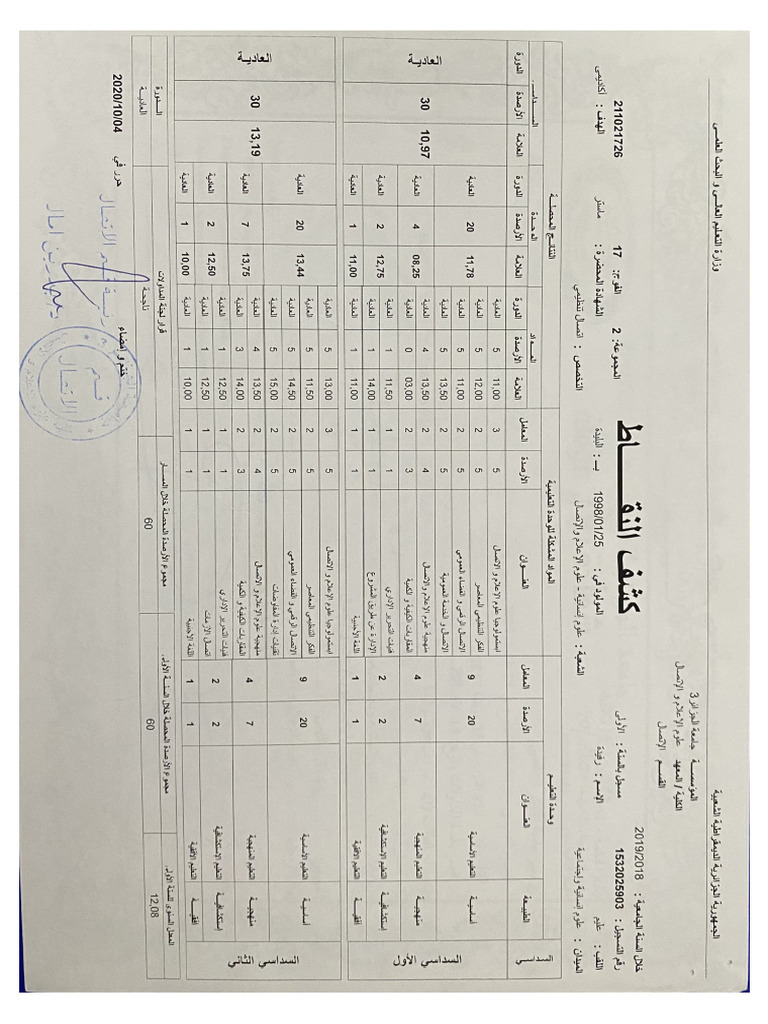 الجمهورية الجزائرية الديمقراطية الشعبية
وزارة التعليم العالي و البحث العلمي
المؤسسة جامعة الجزائر 3
الكلية / المعهد علوم الإعلام و الإتصال
القسم الإتصال
كشف النقاط
خلال السنة الجامعية : 2019/2018 مسجل بالسنة : الأولى
رقم التسجيل : 1532025903 المجموعة: 2 الفوج: 17 211021726
اللقب : عليم الإسم : رفيدة المولود في : 1998/01/25 بـ : البليدة
الميدان : علوم إنسانية واجتماعية الشعبة : علوم إنسانية - علوم الإعلام والإتصال التخصص : اتصال تنظيمي الشهادة المحضرة : ماستر الهدف : أكاديمي
وحدة التعليم المواد المشكلة للوحدة التعليمية النتائج المحصلة
المواد الوحدة السداسي
السداسي الطبيعة العنوان الأرصدة المعامل العنوان الأرصدة المعامل العلامة الأرصدة الدورة العلامة الأرصدة الدورة العلامة الأرصدة الدورة
السداسي الأول أساسية التعليم الأساسية 20 9 ابستمولوجيا علوم الإعلام و الاتصال 5 3 11,00 5 العادية 11,78 20 العادية 10,97 30 العادية
الفكر التنظيمي المعاصر 5 2 12,00 5 العادية
الاتصال الرقمي و الفضاء العمومي 5 2 11,00 5 العادية
الاتصال و الخدمة العمومية 5 2 13,50 5 العادية
منهجية التعليم المنهجية 7 4 منهجية علوم الإعلام والاتصال 4 2 13,50 4 العادية 08,25 4 العادية
المقاربات الكيفية و الكمية 3 2 03,00 0 العادية
إستكشافية التعليم الاستكشافية 2 2 فنيات التحرير الإداري 1 1 11,50 1 العادية 12,75 2 العادية
الإدارة عن طريق المشروع 1 1 14,00 1 العادية
أفقية التعليم الأفقية 1 1 اللغة الأجنبية 1 1 11,00 1 العادية 11,00 1 العادية
السداسي الثاني أساسية التعليم الأساسية 20 9 ابستمولوجيا علوم الإعلام و الاتصال 5 3 13,00 5 العادية 13,44 20 العادية 13,19 30 العادية
الفكر التنظيمي المعاصر 5 2 11,50 5 العادية
الاتصال الرقمي و الفضاء العمومي 5 2 14,50 5 العادية
تقنيات إدارة المفاوضات 5 2 15,00 5 العادية
منهجية التعليم المنهجية 7 4 منهجية علوم الإعلام و الاتصال 4 2 13,50 4 العادية 13,75 7 العادية
المقاربات الكيفية و الكمية 3 2 14,00 3 العادية
إستكشافية التعليم الاستكشافية 2 2 فنيات التحرير الإداري 1 1 12,50 1 العادية 12,50 2 العادية
اتصال الازمات 1 1 12,50 1 العادية
أفقية التعليم الأفقية 1 1 اللغة الأجنبية 1 1 10,00 1 العادية 10,00 1 العادية
المعدل السنوي للسنة الأولى. مجموع الأرصدة المحصلة خلال السنة الأولى. مجموع الأرصدة المحصلة خلال المسار قرار لجنة المداولات الدورة
12,08 60 60 ناجحة العادية
حرر في 2020/10/04
ختم و إمضاء
رئيسة قسم الاتصال
قسم
الاتصال